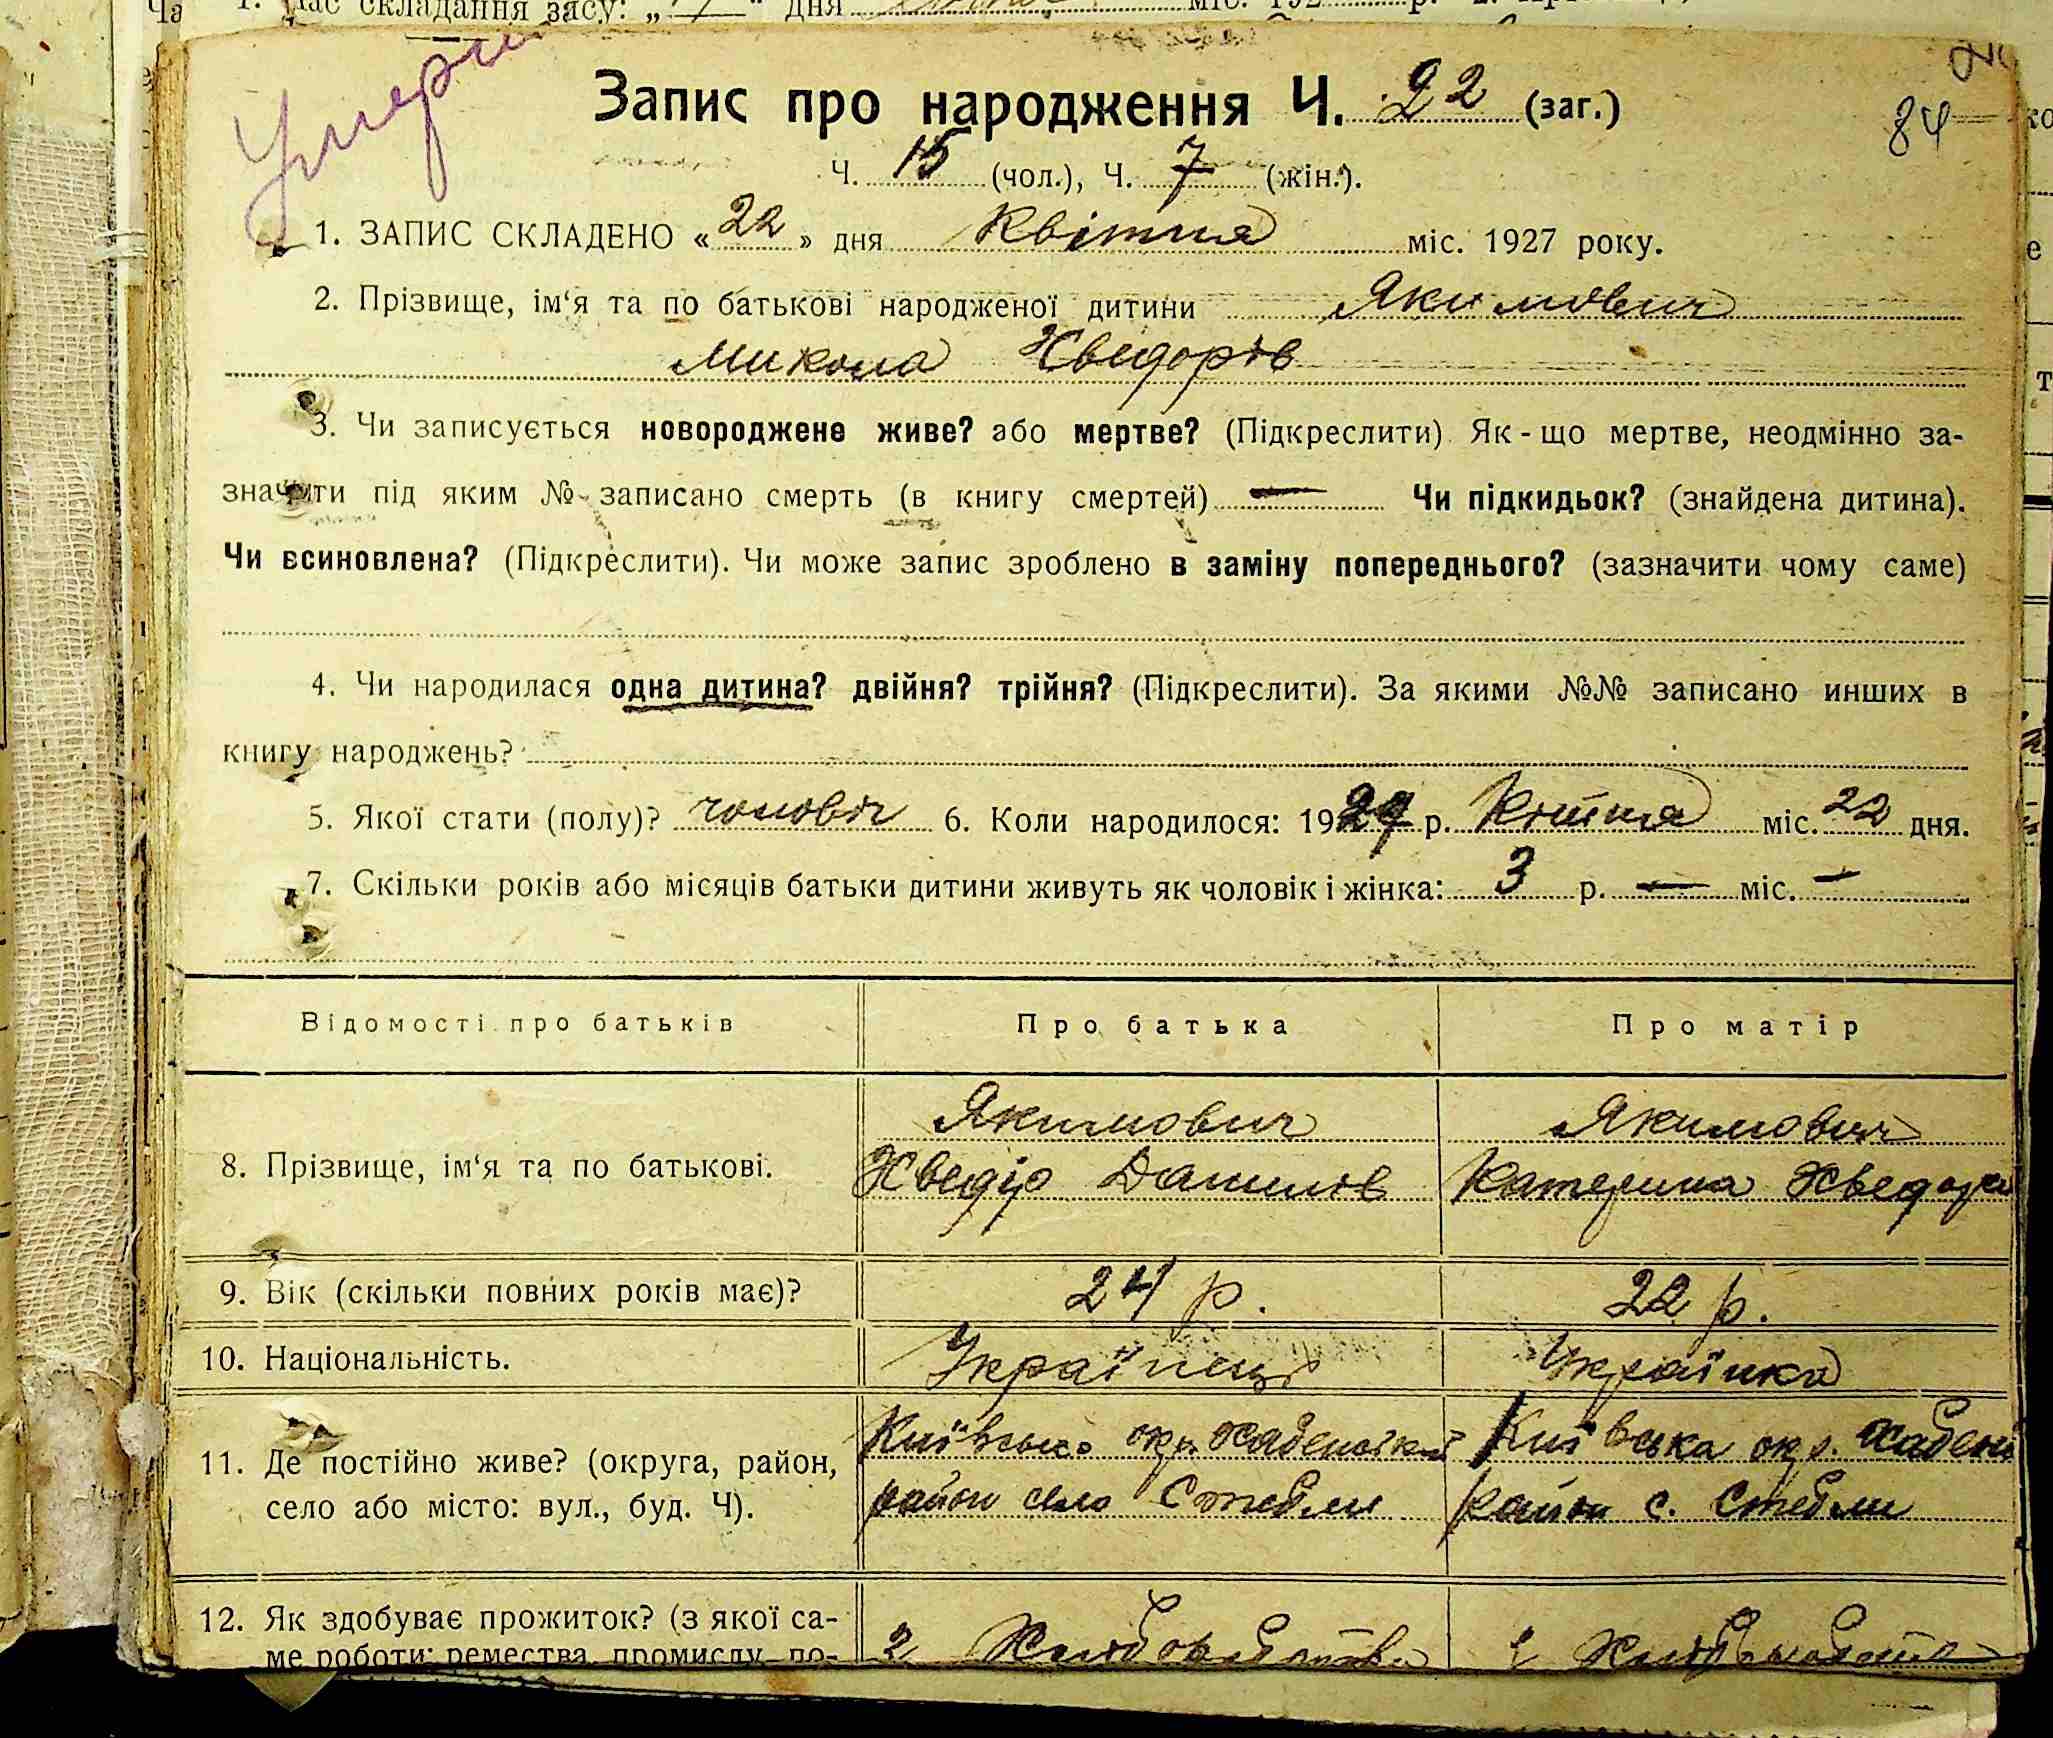 Запис про народження Ч. 22 (заг.)
84
Ч. 15 (чол.), Ч. 7 (жін.).
1. ЗАПИС СКЛАДЕНО «22» дня Квітня міс. 1927 року.
2. Прізвище, ім‘я та по батькові народженої дитини Якимович
Микола Хведорів
3. Чи записується новороджене живе? або мертве? (Підкреслити) Як-що мертве, неодмінно за-
значити під яким № записано смерть (в книгу смертей) — Чи підкидьок? (знайдена дитина).
Чи всиновлена? (Підкреслити). Чи може запис зроблено в заміну попереднього? (зазначити чому саме)
4. Чи народилася одна дитина? двійня? трійня? (Підкреслити). За якими №№ записано инших в
книгу народжень?
5. Якої стати (полу)? чоловіч 6. Коли народилося: 1927 р. Квітня міс. 22 дня.
7. Скільки років або місяців батьки дитини живуть як чоловік і жінка: 3 р. — міс. —
Відомості про батьків Про батька Про матір
Якимович Якимович
8. Прізвище, ім‘я та по батькові. Хведір Данилів Катерина Хведорів
9. Вік (скільки повних років має)? 24 р. 22 р.
10. Національність. Українець Українка
Київська окр. Хабенський Київська окр. Хабенс
11. Де постійно живе? (округа, район, район село Стебли район с. Стебли
село або місто: вул., буд. Ч).
12. Як здобуває прожиток? (з якої са-
ме роботи: ремества, промислу, по- з Хліборобства з Хліборобства